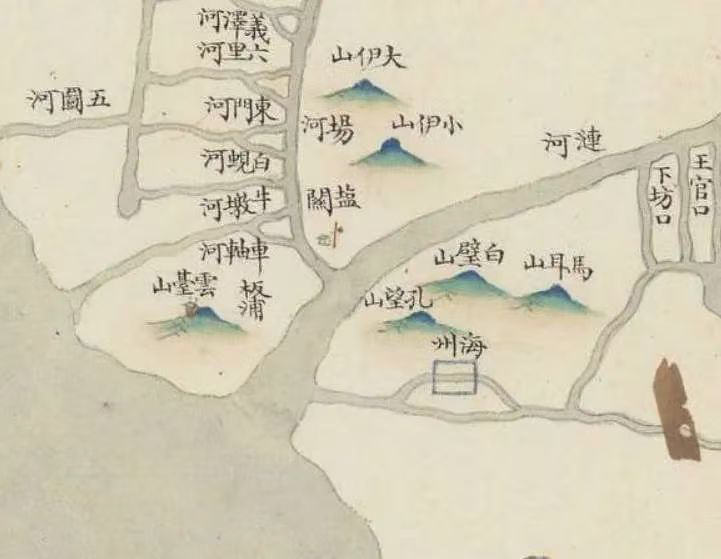 義澤河
六里河
大伊山
五圖河
東門河
場河
小伊山
漣河
王官口
下坊口
白蜆河
牛墩河
塩關
車軸河
白璧山
馬耳山
雲臺山
板浦
孔望山
海州